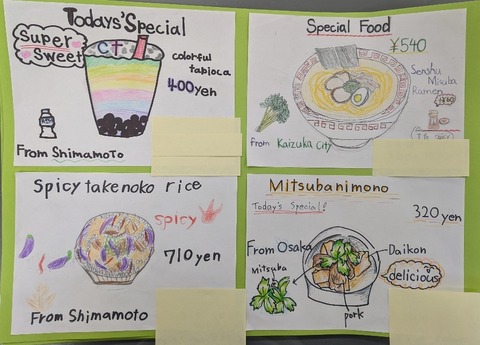 Todays' Special
Super
Sweet
CT
colorful
tapioca
400yen
From Shimamoto
Special Food
¥540
Senshu
Mitsuba
Ramen
from Kaizuka City
Spicy takenoko rice
spicy
710yen
From Shimamoto
Mitsubanimono
Today's Special!
320 yen
From Osaka
mitsuba
Daikon
delicious
pork